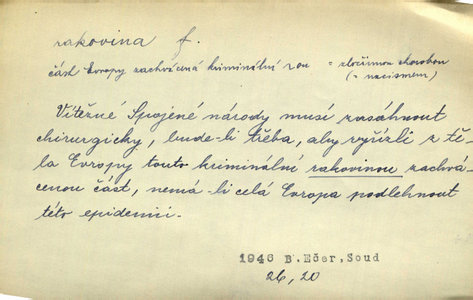 rakovina f.
část Evropy zachvácená kriminální zou = zločinnou chorobou
(= nacismem)
Vítězné Spojené národy musí zasáhnout
chirurgicky, bude-li třeba, aby vyřízli z tě-
la Evropy touto kriminální rakovinou zachvá-
cenou část, nemá-li celá Evropa podlehnout
této epidemii.
1946 B.Ečer, Soud
26, 20